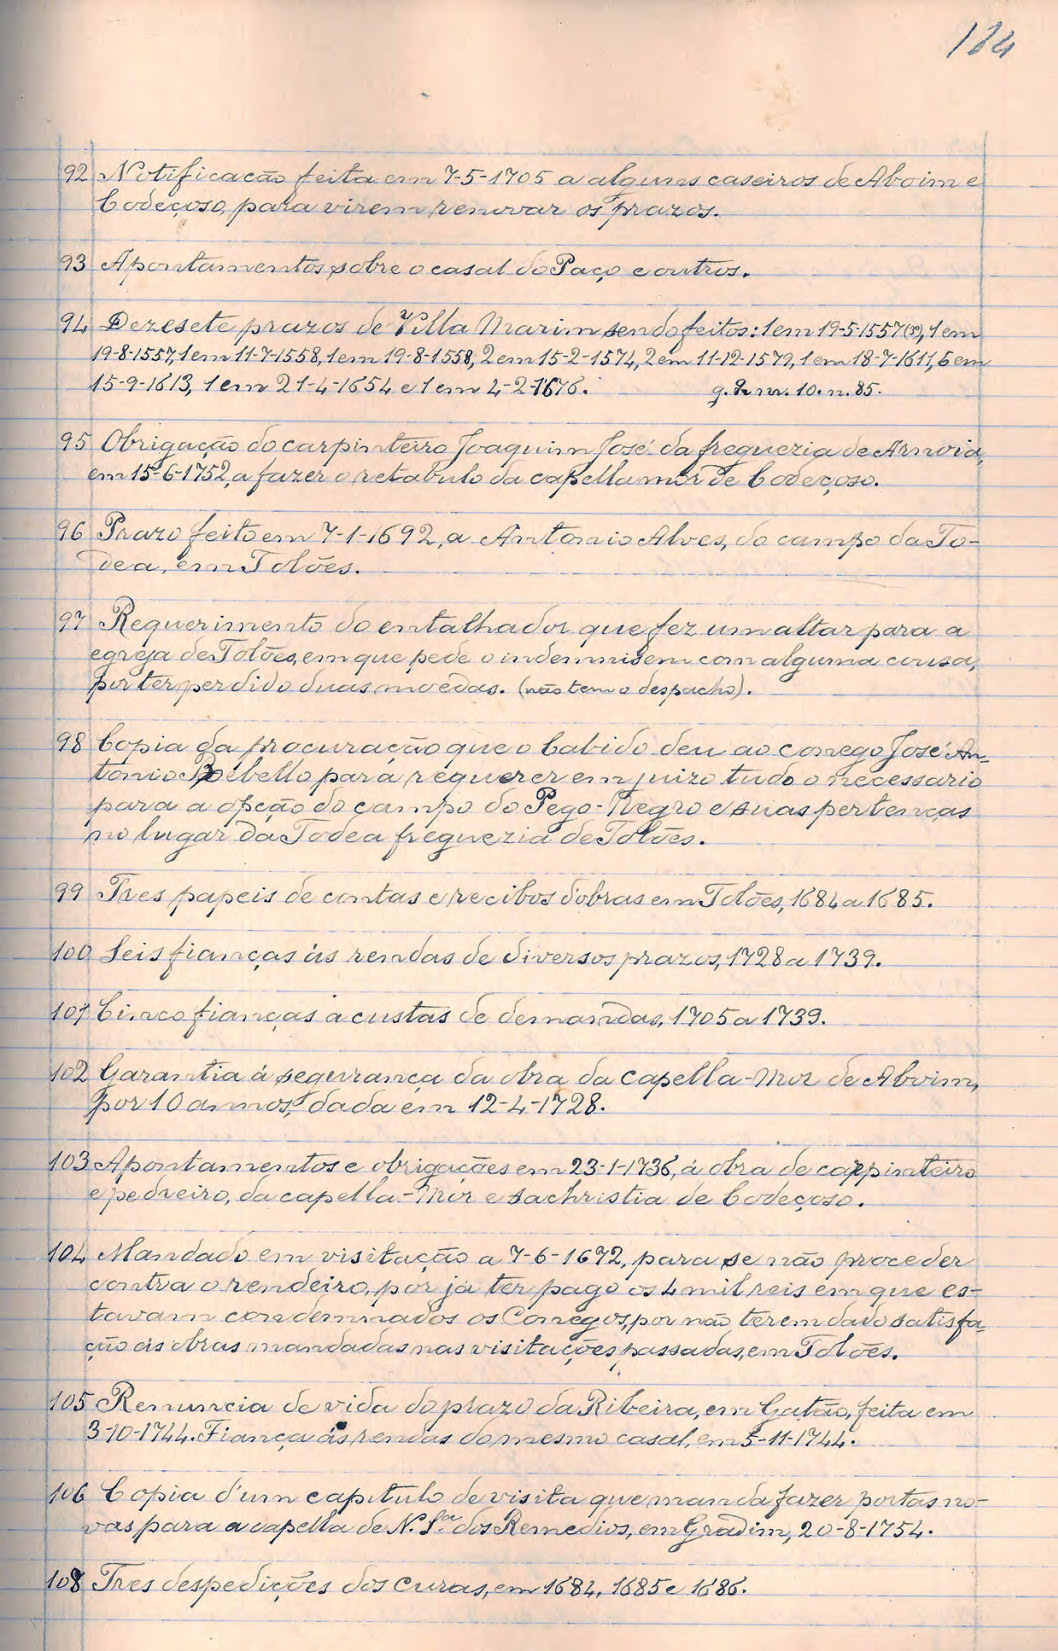 184
92 Notificacão feita em 7-5-1705 a alguns caseiros de Aboim e
Codeçoso, para virem renovar os prazos.
93 Apontamentos sobre o casal do Paço e outros.
94 Dezesete prazos de Villa Marim sendo feitos: 1 em 19-5-1557, 1 em
19-8-1557, 1 em 11-7-1558, 1 em 19-8-1558, 2 em 15-2-1574, 2 em 11-12-1579, 1 em 18-7-1611, 6 em
15-9-1613, 1 em 21-4-1654 e 1 em 4-2-1676. 10. n. 85.
95 Obrigação do carpinteiro Joaquim José da freguezia de Arnoia,
em 15-6-1752, a fazer o retabulo da capella mór de Codeçoso.
96 Prazo feito em 7-1-1692, a Antonio Alves, do campo da To-
dea, em Tolões.
97 Requerimento do entalhador que fez um altar para a
egreja de Tolões, em que pede o indemnisem com alguma cousa,
por ter perdido duas moedas. (não tem o despacho).
98 Copia da procuração que o Cabido deu ao conego José An-
tonio Rebello para requerer em juizo tudo o necessario
para a opção do campo do Pego-Negro e suas pertenças
no lugar da Todea freguezia de Tolões.
99 Tres papeis de contas e recibos d'obras em Tolões, 1684 a 1685.
100 Seis fianças ás rendas de diversos prazos, 1728 a 1739.
101 Cinco fianças a custas de demandas, 1705 a 1739.
102 Garantia á segurança da obra da capella-Mor de Aboim,
por 10 annos, dada em 12-4-1728.
103 Apontamentos e obrigações em 23-1-1736, á obra de carpinteiro
e pedreiro, da capella-Mór e sachristia de Codeçoso.
104 Mandado em visitação a 7-6-1672, para se não proceder
contra o rendeiro, por já ter pago os 4 mil reis em que es-
tavam condemnados os Conegos, por não terem dado satisfa-
ção ás obras mandadas nas visitações passadas, em Tolões.
105 Renuncia de vida do prazo da Ribeira, em Gatão, feita em
3-10-1744. Fiança ás rendas do mesmo casal, em 5-11-1744.
106 Copia d'um capitulo de visita que manda fazer portas no-
vas para a capella de N. Sra. dos Remedios, em Gradim, 20-8-1754.
108 Tres despedições dos curas, em 1684, 1685 e 1686.